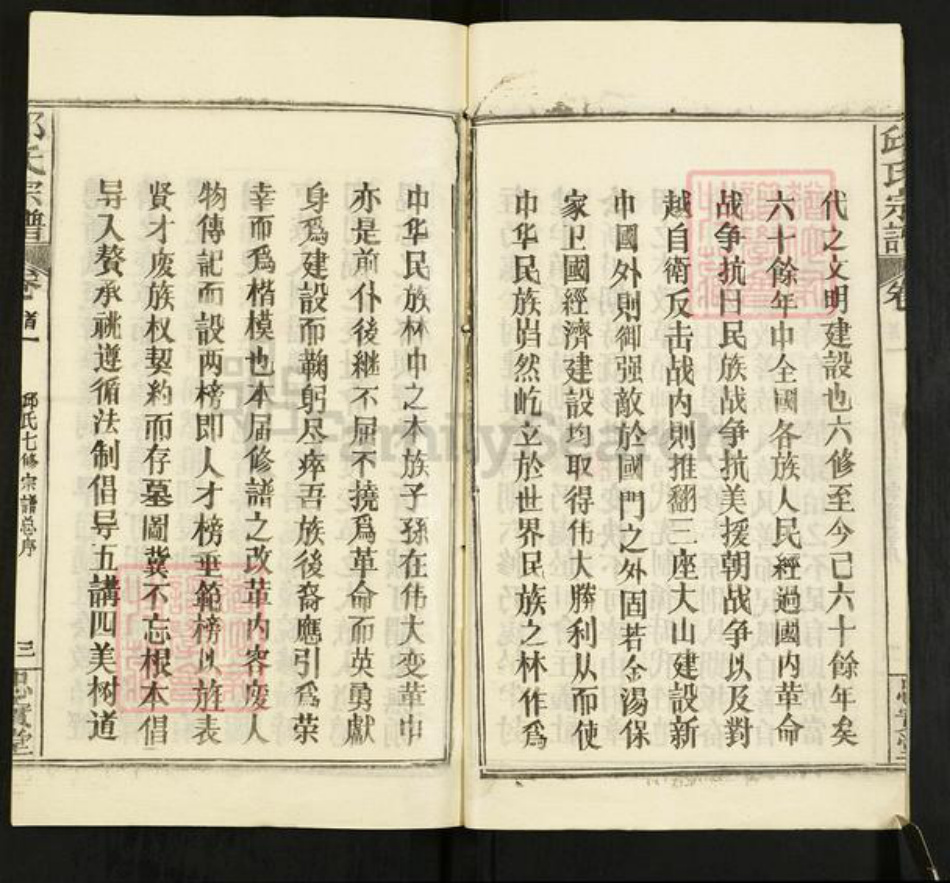 代之文明建設也六修至今已六十餘年矣
六十餘年中全國各族人民經過國内革命
战争抗日民族战争抗美援朝战争以及對
越自衛反击战内則推翻三座大山建設新
中國外則御强敵於國門之外固若金湯保
家卫國經濟建設均取得伟大勝利从而使
中华民族岿然屹立於世界民族之林作爲
邱氏宗譜
卷
中华民族林中之木族子孫在伟大变革中
亦是前仆後継不屈不撓爲革命而英勇獻
身爲建設而鞠躬尽瘁吾族後裔應引爲荣
幸而爲楷模也本届修譜之改革内容廋人
物傳記而設两榜即人才榜垂範榜以旌表
賢才废族权契約而存墓圖冀不忘根本倡
导入赘承祧遵循法制倡导五講四美树道
邱氏宗譜
卷首一
邱氏七修宗譜总序
三
忠實堂
FamilySearch